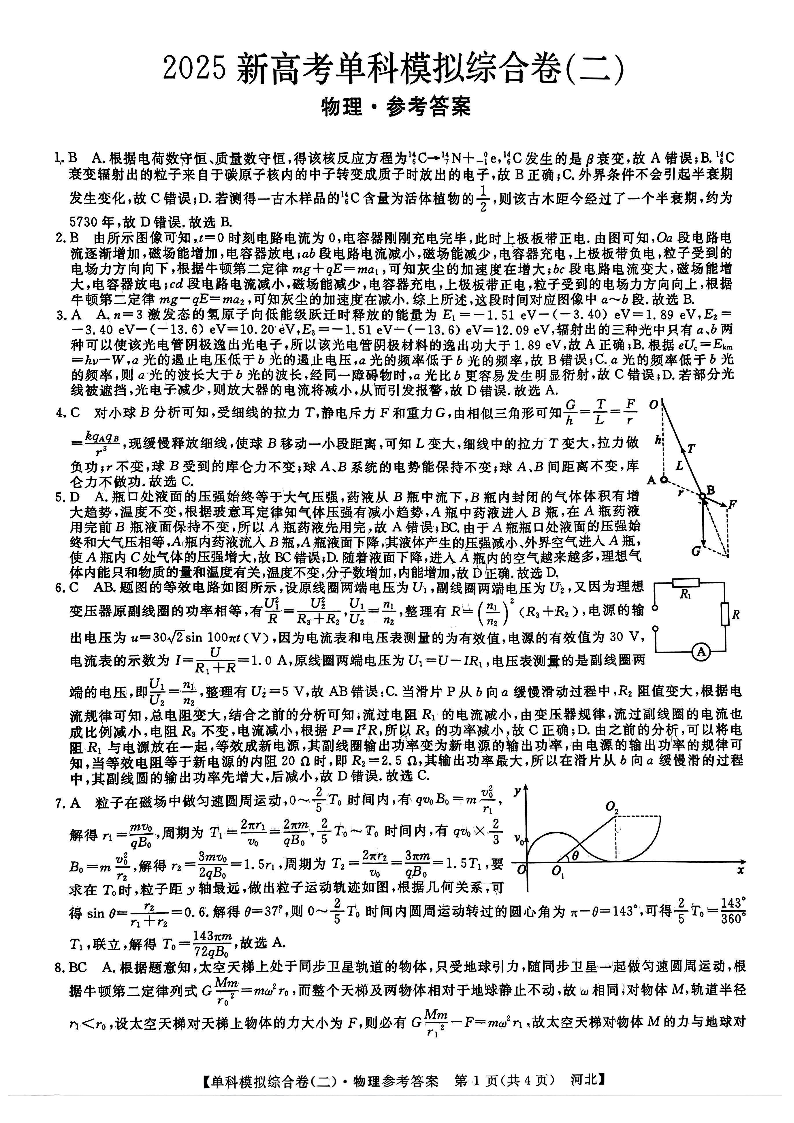 2025 新高考单科模拟综合卷(二)
物理·参考答案
1. B　A. 根据电荷数守恒、质量数守恒,得该核反应方程为¹⁴₆C→¹⁴₇N+₋₁⁰e,¹⁴₆C 发生的是 β 衰变,故 A 错误;B. ¹⁴₆C
衰变辐射出的粒子来自于碳原子核内的中子转变成质子时放出的电子,故 B 正确;C. 外界条件不会引起半衰期
发生变化,故 C 错误;D. 若测得一古木样品的¹⁴₆C 含量为活体植物的1/2,则该古木距今经过了一个半衰期,约为
5730 年,故 D 错误. 故选 B.
2. B　由所示图像可知,t=0 时刻电路电流为 0,电容器刚刚充电完毕,此时上极板带正电. 由图可知,Oa 段电路电
流逐渐增加,磁场能增加,电容器放电;ab 段电路电流减小,磁场能减少,电容器充电,上极板带负电,粒子受到的
电场力方向向下,根据牛顿第二定律 mg+qE=ma₁,可知灰尘的加速度在增大;bc 段电路电流变大,磁场能增
大,电容器放电;cd 段电路电流减小,磁场能减少,电容器充电,上极板带正电,粒子受到的电场力方向向上,根据
牛顿第二定律 mg-qE=ma₂,可知灰尘的加速度在减小. 综上所述,这段时间对应图像中 a~b 段. 故选 B.
3. A　A. n=3 激发态的氢原子向低能级跃迁时释放的能量为 E₁=-1.51 eV-(-3.40) eV=1.89 eV,E₂=
-3.40 eV-(-13.6) eV=10.20 eV,E₃=-1.51 eV-(-13.6) eV=12.09 eV,辐射出的三种光中只有 a、b 两
种可以使该光电管阴极逸出光电子,所以该光电管阴极材料的逸出功大于 1.89 eV,故 A 正确;B. 根据 eUc=Ekm
=hν-W,a 光的遏止电压低于 b 光的遏止电压,a 光的频率低于 b 光的频率,故 B 错误;C. a 光的频率低于 b 光
的频率,则 a 光的波长大于 b 光的波长,经同一障碍物时,a 光比 b 更容易发生明显衍射,故 C 错误;D. 若部分光
线被遮挡,光电子减少,则放大器的电流将减小,从而引发报警,故 D 错误. 故选 A.
4. C　对小球 B 分析可知,受细线的拉力 T,静电斥力 F 和重力 G,由相似三角形可知G/h=T/L=F/r
=kqAqB/r³,现缓慢释放细线,使球 B 移动一小段距离,可知 L 变大,细线中的拉力 T 变大,拉力做
负功;r 不变,球 B 受到的库仑力不变;球 A、B 系统的电势能保持不变;球 A、B 间距离不变,库
仑力不做功. 故选 C.
O
h
T
L
A
r
B
F
G
5. D　A. 瓶口处液面的压强始终等于大气压强,药液从 B 瓶中流下,B 瓶内封闭的气体体积有增
大趋势,温度不变,根据玻意耳定律知气体压强有减小趋势,A 瓶中药液进入 B 瓶,在 A 瓶药液
用完前 B 瓶液面保持不变,所以 A 瓶药液先用完,故 A 错误;BC. 由于 A 瓶瓶口处液面的压强始
终和大气压相等,A 瓶内药液流入 B 瓶,A 瓶液面下降,其液体产生的压强减小、外界空气进入 A 瓶,
使 A 瓶内 C 处气体的压强增大,故 BC 错误;D. 随着液面下降,进入 A 瓶内的空气越来越多,理想气
体内能只和物质的量和温度有关,温度不变,分子数增加,内能增加,故 D 正确. 故选 D.
6. C　AB. 题图的等效电路如图所示,设原线圈两端电压为 U₁,副线圈两端电压为 U₂,又因为理想
变压器原副线圈的功率相等,有U₁²/R=U₂²/(R₃+R₂),U₁/U₂=n₁/n₂,整理有 R=(n₁/n₂)²(R₃+R₂),电源的输
出电压为 u=30√2 sin 100πt(V),因为电流表和电压表测量的为有效值,电源的有效值为 30 V,
电流表的示数为 I=U/(R₁+R)=1.0 A,原线圈两端电压为 U₁=U-IR₁,电压表测量的是副线圈两
R₁
R
A
端的电压,即U₁/U₂=n₁/n₂,整理有 U₂=5 V,故 AB 错误;C. 当滑片 P 从 b 向 a 缓慢滑动过程中,R₂ 阻值变大,根据电
流规律可知,总电阻变大,结合之前的分析可知,流过电阻 R₁ 的电流减小,由变压器规律,流过副线圈的电流也
成比例减小,电阻 R₃ 不变,电流减小,根据 P=I²R,所以 R₃ 的功率减小,故 C 正确;D. 由之前的分析,可以将电
阻 R₁ 与电源放在一起,等效成新电源,其副线圈输出功率变为新电源的输出功率,由电源的输出功率的规律可
知,当等效电阻等于新电源的内阻 20 Ω时,即 R₂=2.5 Ω,其输出功率最大,所以在滑片从 b 向 a 缓慢滑的过程
中,其副线圈的输出功率先增大,后减小,故 D 错误. 故选 C.
7. A　粒子在磁场中做匀速圆周运动,0~2/5T₀ 时间内,有 qv₀B₀=mv₀²/r₁,
解得 r₁=mv₀/qB₀,周期为 T₁=2πr₁/v₀=2πm/qB₀,2/5T₀~T₀ 时间内,有 qv₀×2/3
B₀=mv₀²/r₂,解得 r₂=3mv₀/2qB₀=1.5r₁,周期为 T₂=2πr₂/v₀=3πm/qB₀=1.5T₁,要
求在 T₀时,粒子距 y 轴最远,做出粒子运动轨迹如图,根据几何关系,可
y
v₀
O
O₁
θ
O₂
x
得 sin θ=r₂/(r₁+r₂)=0.6. 解得 θ=37°,则 0~2/5T₀ 时间内圆周运动转过的圆心角为 π-θ=143°,可得2/5T₀=143°/360°
T₁,联立,解得 T₀=143πm/72qB₀,故选 A.
8. BC　A. 根据题意知,太空天梯上处于同步卫星轨道的物体,只受地球引力,随同步卫星一起做匀速圆周运动,根
据牛顿第二定律列式 G Mm/r₀²=mω²r₀,而整个天梯及两物体相对于地球静止不动,故 ω 相同,对物体 M,轨道半径
r₁<r₀,设太空天梯对天梯上物体的力大小为 F,则必有 G Mm/r₁²-F=mω²r₁,故太空天梯对物体 M 的力与地球对
【单科模拟综合卷(二)·物理参考答案　第 1 页(共 4 页)　河北】